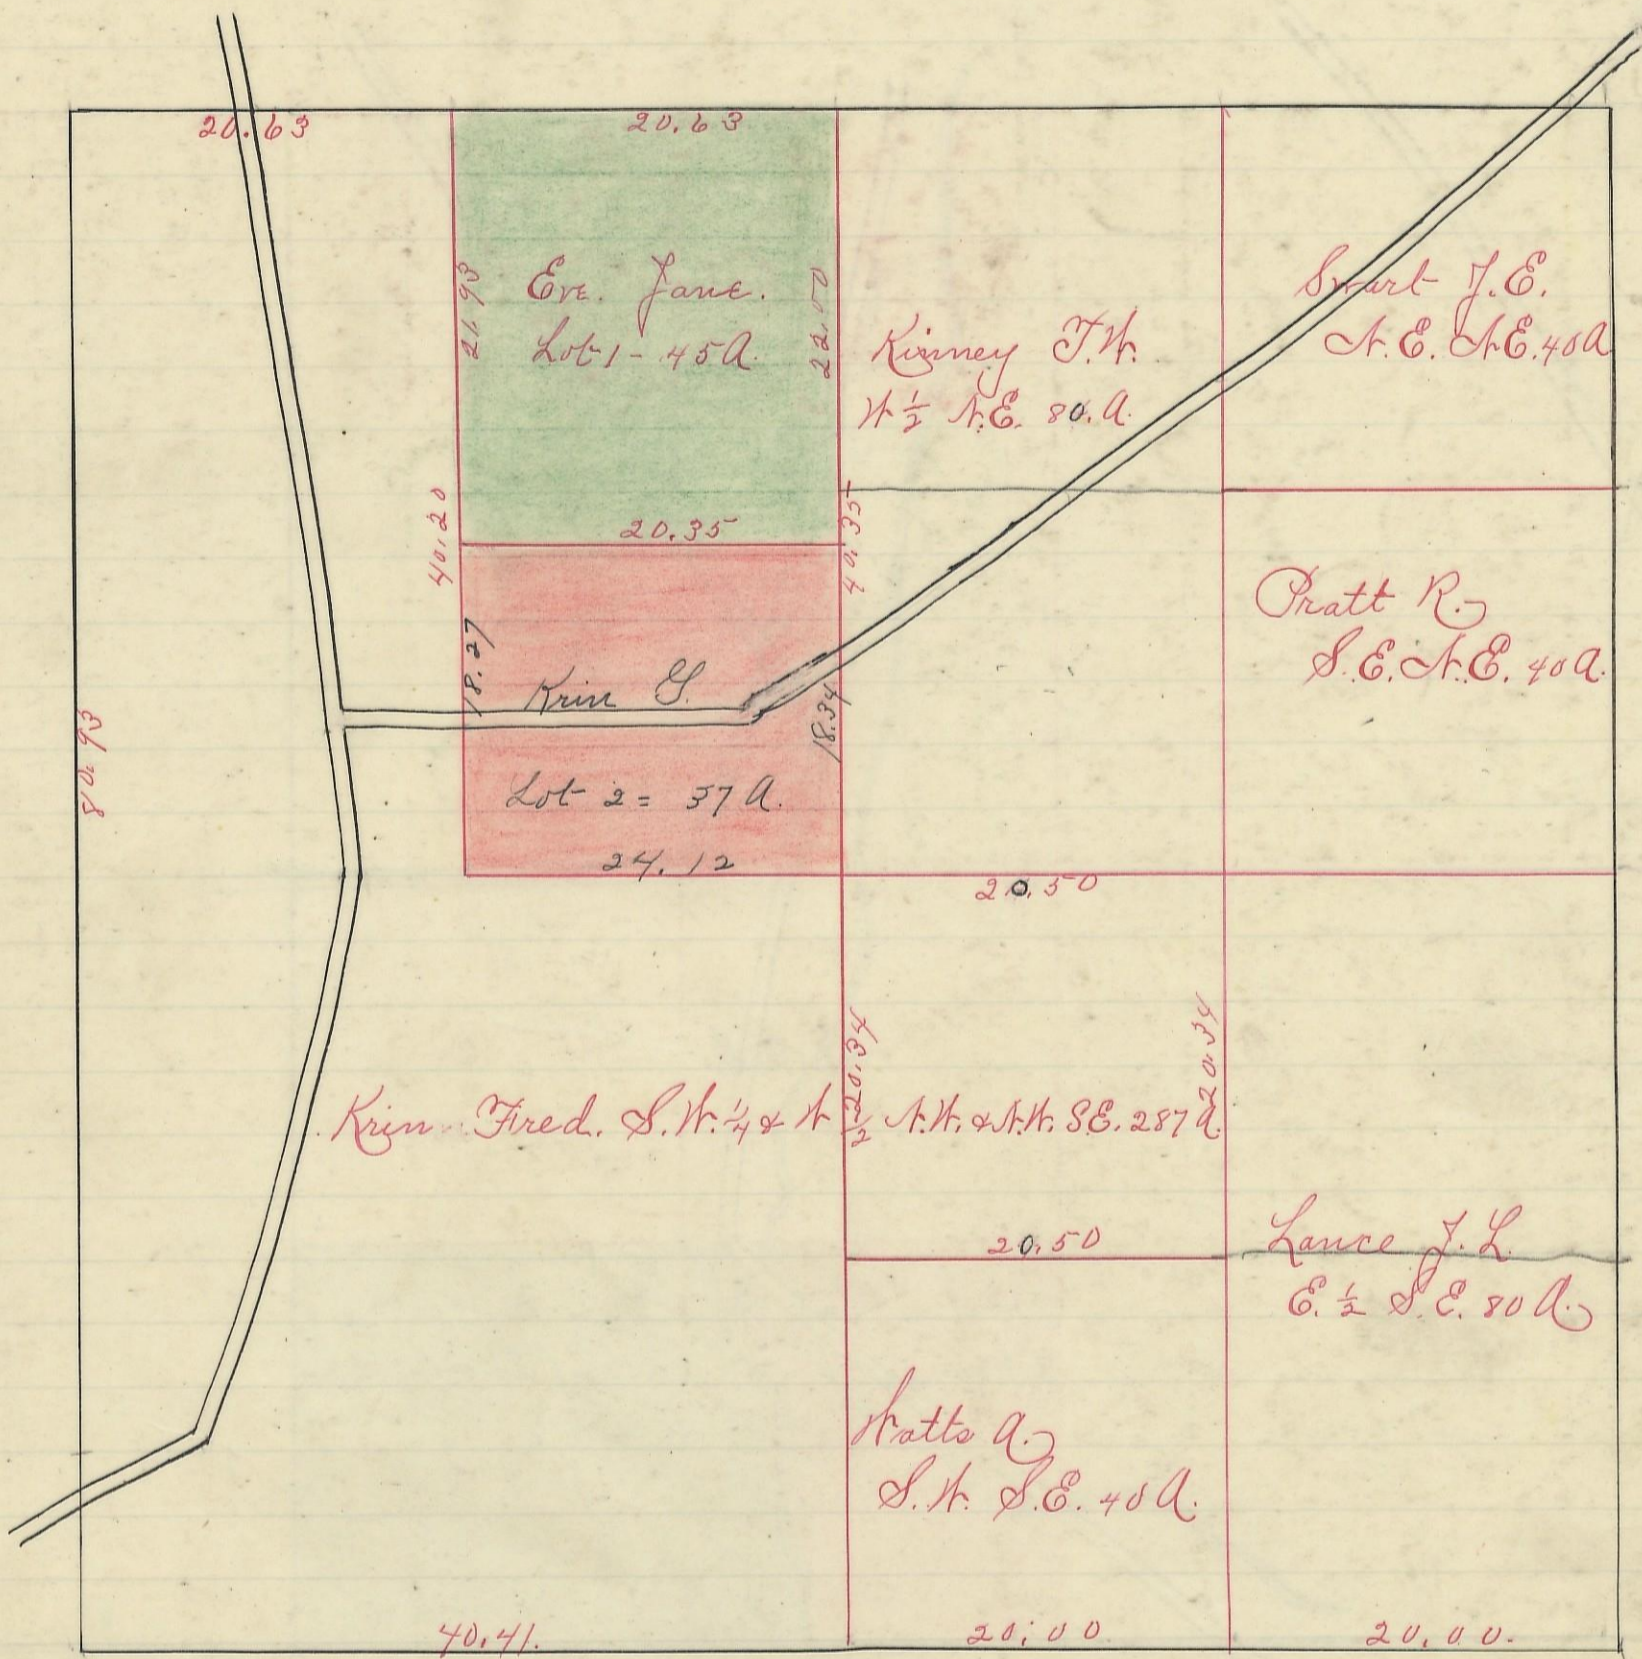 20.63
20.63
Eve. Jane.
Lot 1 - 45 A.
21.93
22.00
Kinney T.W.
W ½ N.E. 80. A.
Smart J.E.
N.E. N.E. 40 A
20.35
40.20
40.35
Pratt R.
S.E. N.E. 40 A.
18.27
Krin G.
18.34
80.93
Lot 2 = 37 A.
24.12
20.50
20.34
20.34
Krin Fred. S.W. ¼ & W ½ N.W. & N.W. S.E. 287 A.
20.50
Lance J. L.
E. ½ S.E. 80 A.
Watts A.
S.W. S.E. 40 A.
40.41.
20.00
20.00.